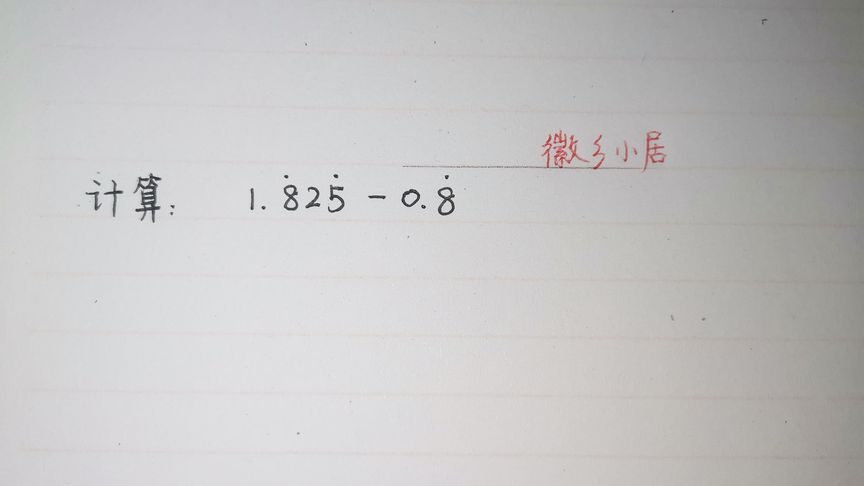 徽乡小居
计算: 1.8̇25̇ - 0.8̇